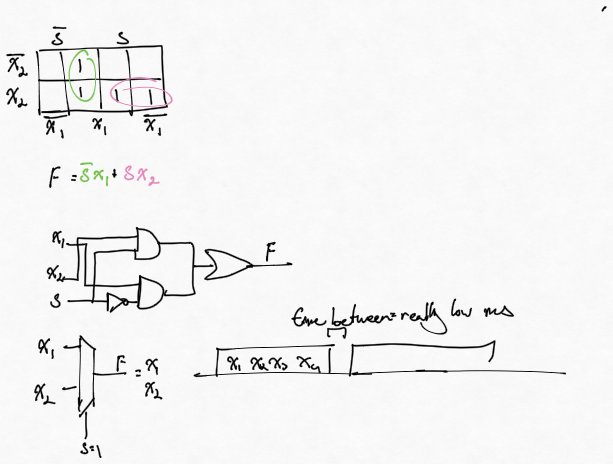 S̅ S
X̅₂ 1
X₂ 1 1 1
X̅₁ X₁ X̅₁
F = S̅X₁ + SX₂
X₁
X₂
S
F
time between = really low ms
X₁ X₂ X₃ X₄
X₁
X₂
F = X₁
X₂
S=1